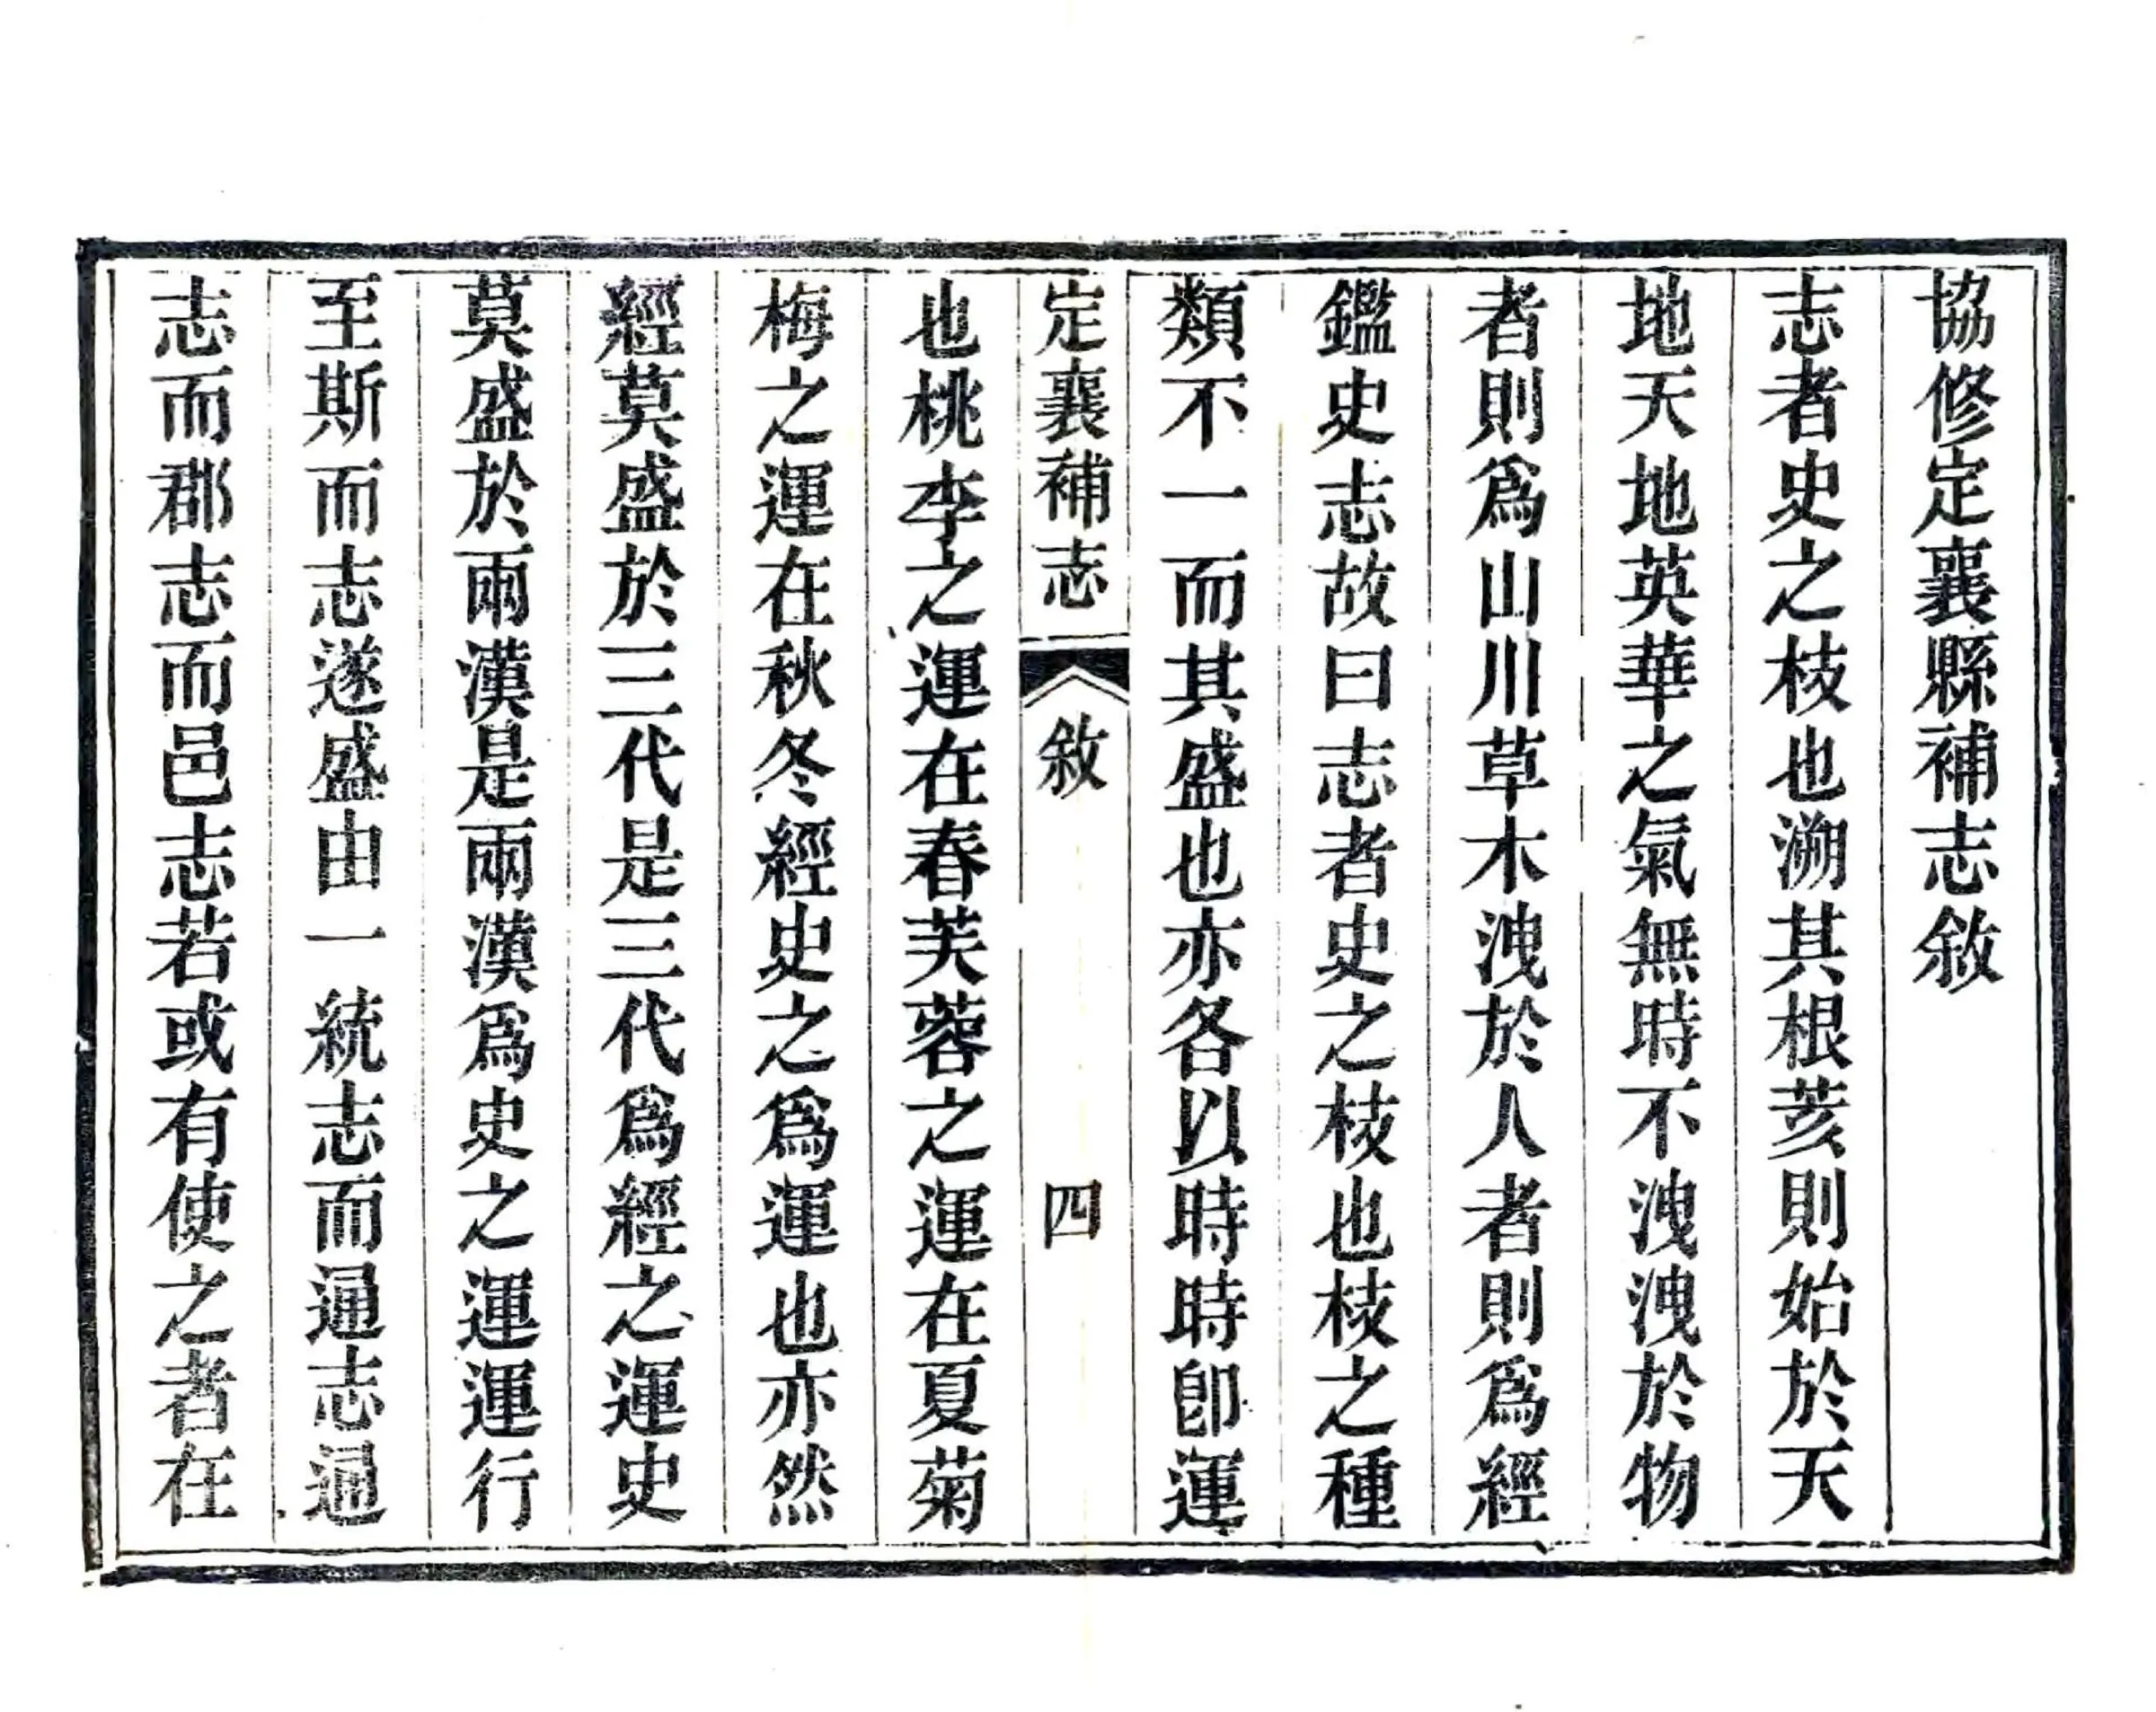 協修定襄縣補志敘
志者史之枝也溯其根荄則始於天
地天地英華之氣無時不洩洩於物
者則爲山川草木洩於人者則爲經
鑑史志故曰志者史之枝也枝之種
類不一而其盛也亦各以時時卽運
定襄補志
敘
四
也桃李之運在春芙蓉之運在夏菊
梅之運在秋冬經史之爲運也亦然
經莫盛於三代是三代爲經之運史
莫盛於兩漢是兩漢爲史之運運行
至斯而志遂盛由一統志而通志通
志而郡志而邑志若或有使之者在